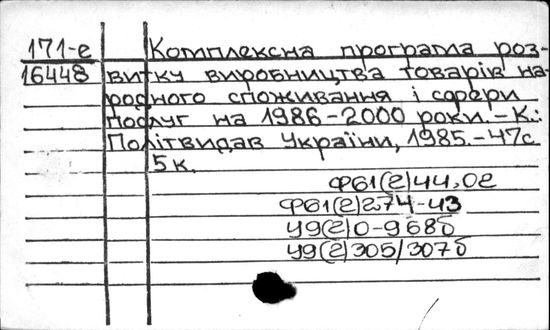 171-е Комплексна програма роз-
16448 витку виробництва товарів на-
родного споживання і сфери
послуг на 1986-2000 роки.-К.:
Політвидав України, 1985.-47с.
5к.
Ф61(2)44.02
Ф61(2)274-43
У9(2)0-968б
У9(2)305/307б